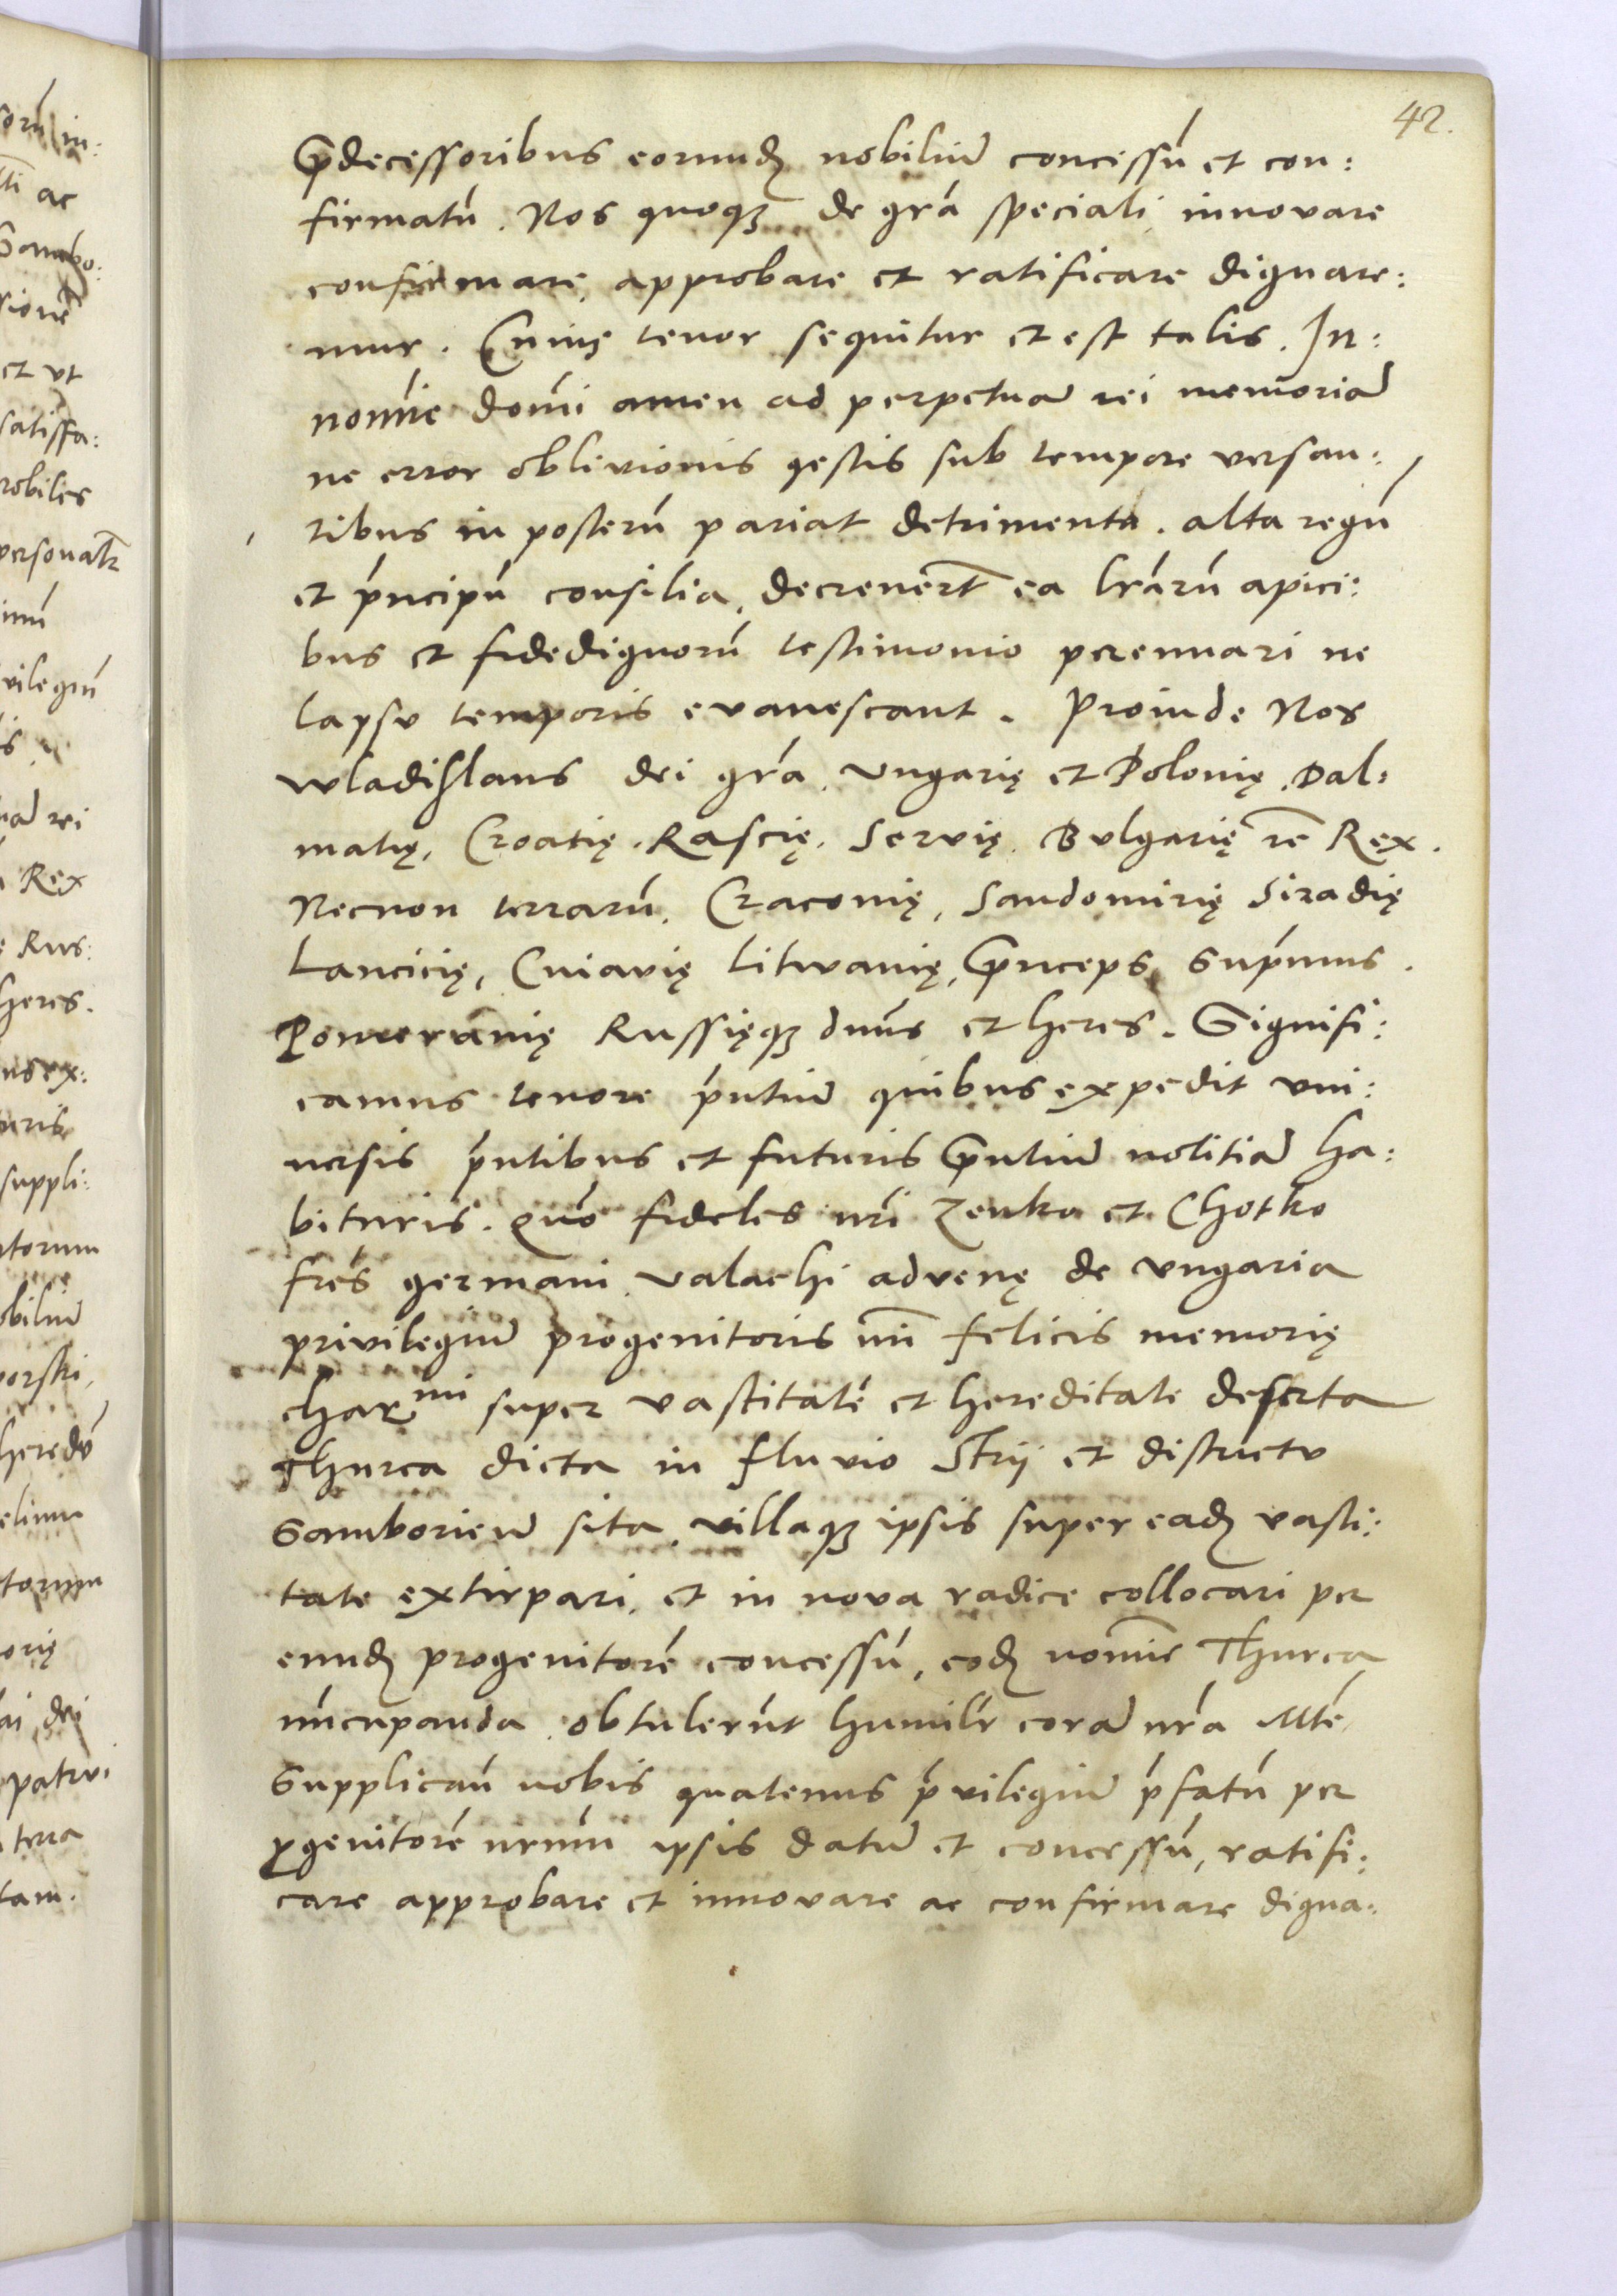 42.
Prdecessoribus eorundꝫ nobiliū concessū et con:
firmatū. Nos quoqꝫ de grā speciali innovare
confirmare, approbare et ratificare dignare:
mur. Cuius tenor sequitur et est talis. In:
nomīe domī amen ad perpetuā rei memoriā
ne error oblivionis gestis sub tempore versan:
tibus in posterū pariat detrimenta. alta regū
et prīncipū consilia, decreverūt ea lrārū apici:
bus et fidedignorū testimonio perennari ne
lapsu temporis evanescant. Proinde Nos
Wladislaus dei grā, Ungarię et Polonię, Dal:
matię, Croatię. Rascię. Servię. Bulgarię rē Rex.
Necnon terrarū, Cracovię, Sandomirię Siradię
Lancicię, Cuiavię Litvanię, Prnceps Suprmus.
Pomeranię Russięqꝫ dnūs et heres. Signifi:
camus tenore prntiū quibus expedit uni:
uersis prntibus et futuris Prntiū notitiā ha:
bituris. quō fideles nrī Zenko et Chotko
frēs germani Valachi advenę de Ungaria
privilegiū progenitoris nrī felicis memorię
charmi super vastitatē et hereditate deserta
Thurca dicta in fluvio Strij et districtu
Samborien sita, villaqꝫ ipsis super eadꝫ vasti:
tate extirpari, et in nova radice collocari per
eundꝫ progenitorē concessū, eodꝫ nomīe Thurca
nūcupanda, obtulerūt humilr corā nrā Mte
Supplicaū nobis quatenus prvilegiū prfatū per
prgenitorē nrnm ipsis datū et concessū, ratifi:
care approbare et innovare ac confirmare digna: